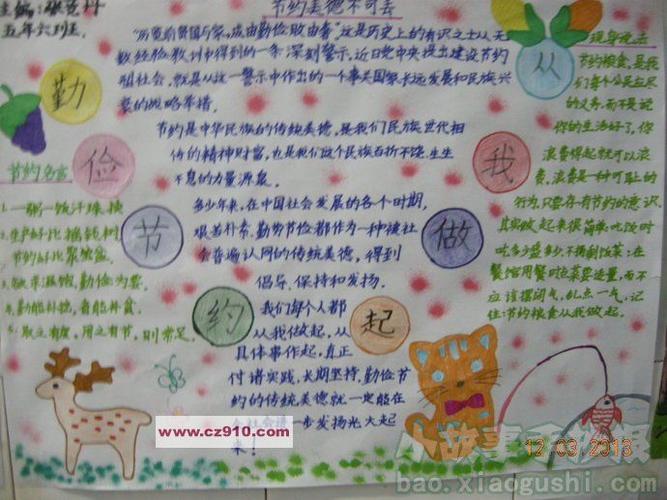 主编:张
五年六班
节约美德不可丢
"历览前贤国与家,成由勤俭败由奢"这是历史上的有识之士从无
数经验教训中得到的一条深刻警示,近日党中央提出建设节约
型社会,就是从这一警示中作出的一个事关国家长远发展和民族兴
衰的战略举措.
节约是中华民族的传统美德,是我们民族世代相
传的精神财富,也是我们这个民族百折不饶.生生
不息的力量源泉.
多少年来,在中国社会发展的各个时期,
艰苦朴素.勤劳节俭都作为一种被社
会普遍认同的传统美德,得到
倡导.保持和发扬.
我们每个人都
从我做起,从
具体事作起,真正
付诸实践,长期坚持,勤俭节
约的传统美德就一定能在
一步发扬光大起
来!
勤
俭
节
约
从
我
做
起
节约名言
1.一粥一饭汗珠换
2.生产好比摇钱树
节约好比聚宝盆.
3.欲求温饱,勤俭为要.
4.勤能补拙,省能补贫.
5.取之有度,用之有节,则常足.
节约粮食,是我
们每个公民应尽
的义务,而不是说
你的生活好了,你
浪费得起就可以浪
费.浪费是一种可耻的
行为.只要存有节约的意识.
其实做起来很简单:吃饭时
吃多少盛多少,不揭剩饭菜;在
餐馆用餐时点菜要适量,而不
应该摆阔气,乱点一气,记
住:节约粮食从我做起.
www.cz910.com
12 03 2013
小故事手抄报
bao.xiaogushi.com